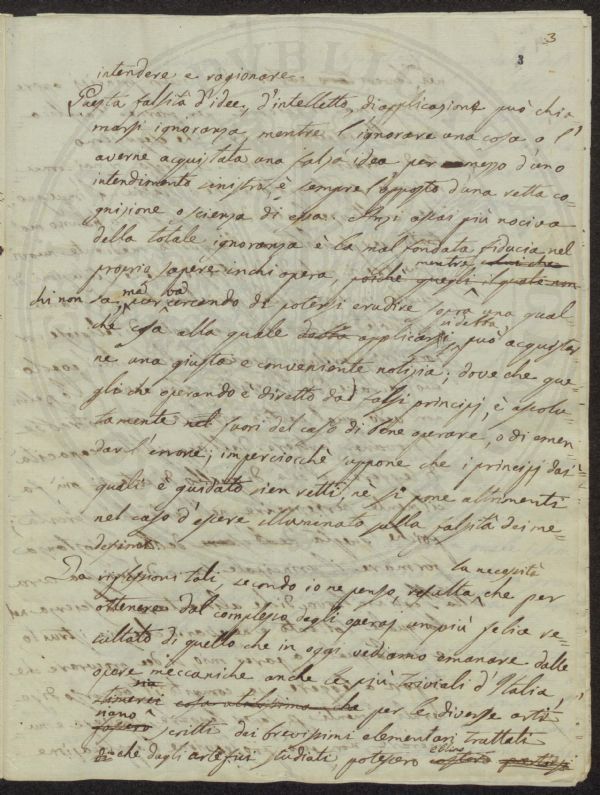 3
3
intendere e ragionare.
Questa falsità d'idee, d'intelletto, di applicazione può chia=
marsi ignoranza, mentre l'ignorare una cosa o l'
averne acquistata una falsa idea per mezzo d'uno
intendimento sinistro, è sempre l'opposto d'una retta co=
gnizione o scienza di essa. Anzi assai più nociva
della totale ignoranza è la mal fondata fiducia nel
proprio sapere in chi opera, poichè quegli il quale non
mentre colui che
chi non sa, med cercando di potersi erudire sopra una qual=
che cosa alla quale dassi applicarsi, può acquistar=
ne una giusta e conveniente notizia; dove che que=
gli che operando è diretto da falsi principj, è assolu=
tamente nel fuori del caso di bene operare, o di emen=
dar l'errore; imperciocchè suppone che i principj dai
quali è guidato sien retti, nè si pone altrimenti
nel caso d'essere illuminato sulla falsità dei me=
desimi.
la necessità
Da riflessioni tali, secondo io ne penso, resulta che per
ottenere dal complesso degli operaj un più felice re=
sultato di quello che in oggi vediamo emanare dalle
opere meccaniche anche le più triviali d'Italia,
stimerei cosa utilissima che per le diverse arti
siano
fossero scritti dei brevissimi elementari trattati
che dagli artefici studiati, potessero